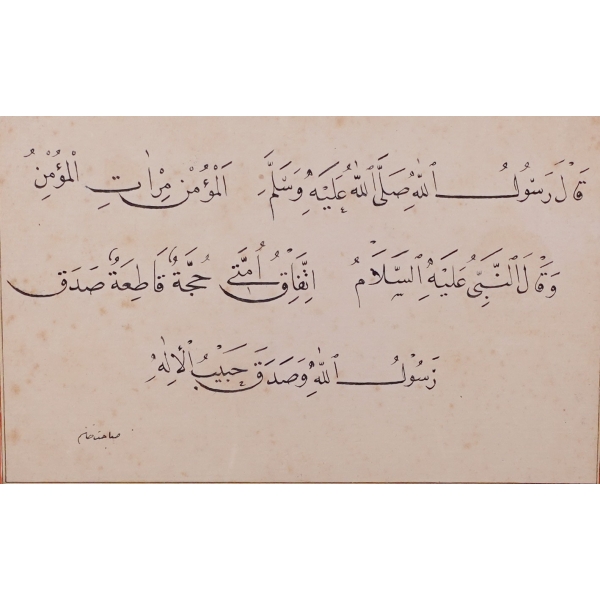 قَالَ رَسُولُ اللّٰهِ صَلَّى اللّٰهُ عَلَيْهِ وَسَلَّمَ اَلْمُؤْمِنُ مِرْاٰتِ الْمُؤْمِنُ
وَقَالَ النَّبِيُّ عَلَيْهِ السَّلَامُ اتِّفَاقُ اُمَّتِى حُجَّةٌ قَاطِعَةٌ صَدَقَ
رَسُولُ اللّٰهِ وَصَدَقَ حَبِيْبُ الْاِلٰهِ